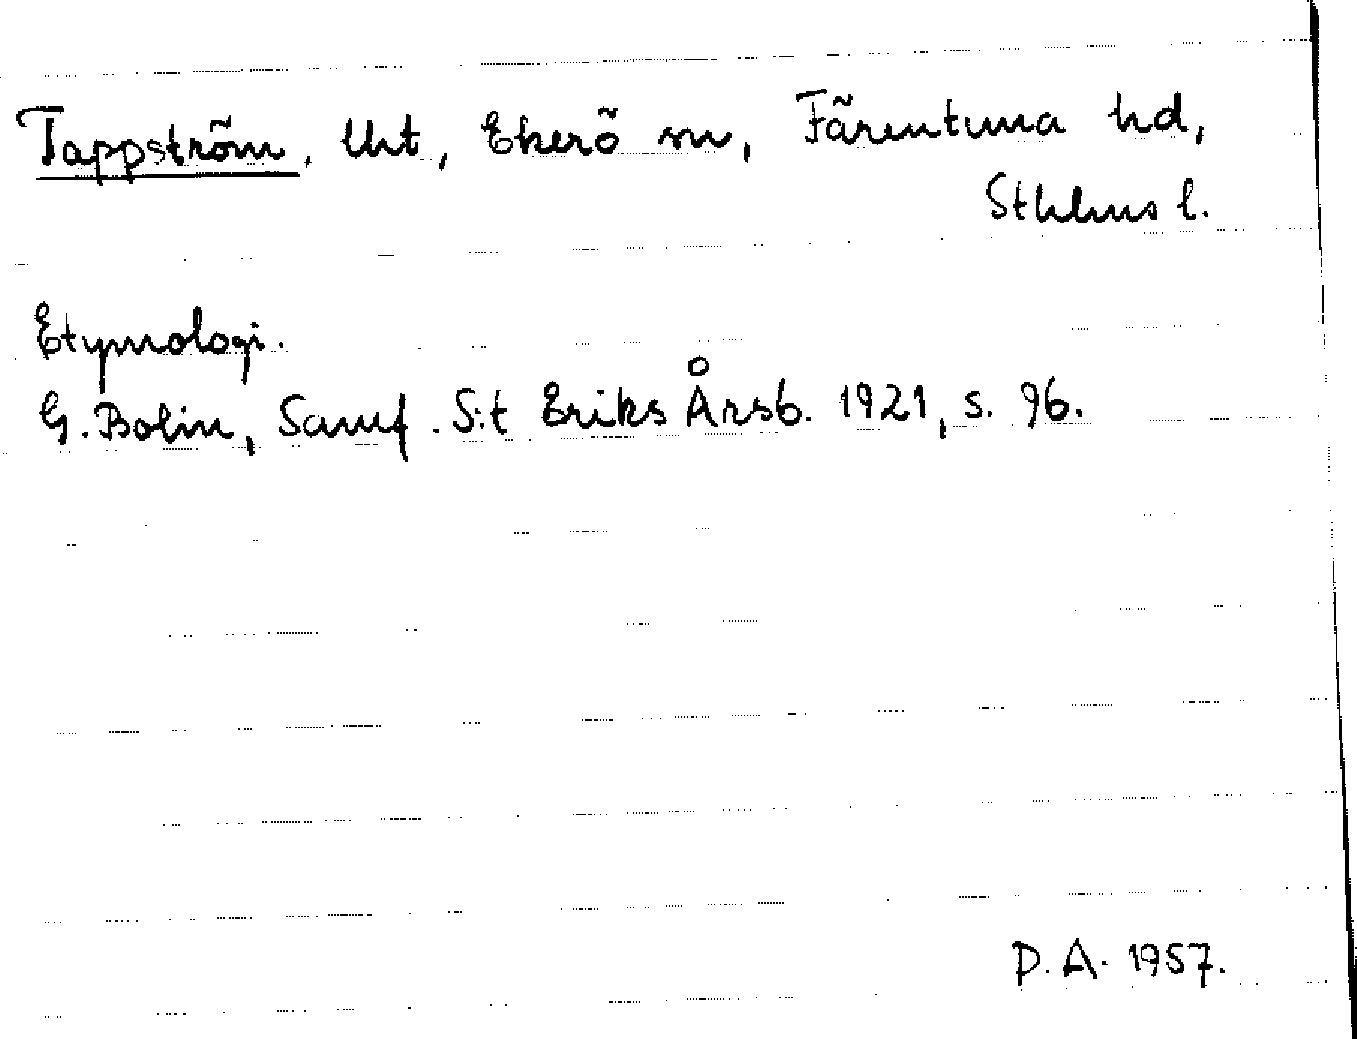 Tappström, Ukt, Ekerö sn, Färentuna hd,
Sthlms l.
Etymologi.
G. Bolin, Samf. S:t Eriks Årsb. 1921, s. 96.
P. A. 1957.